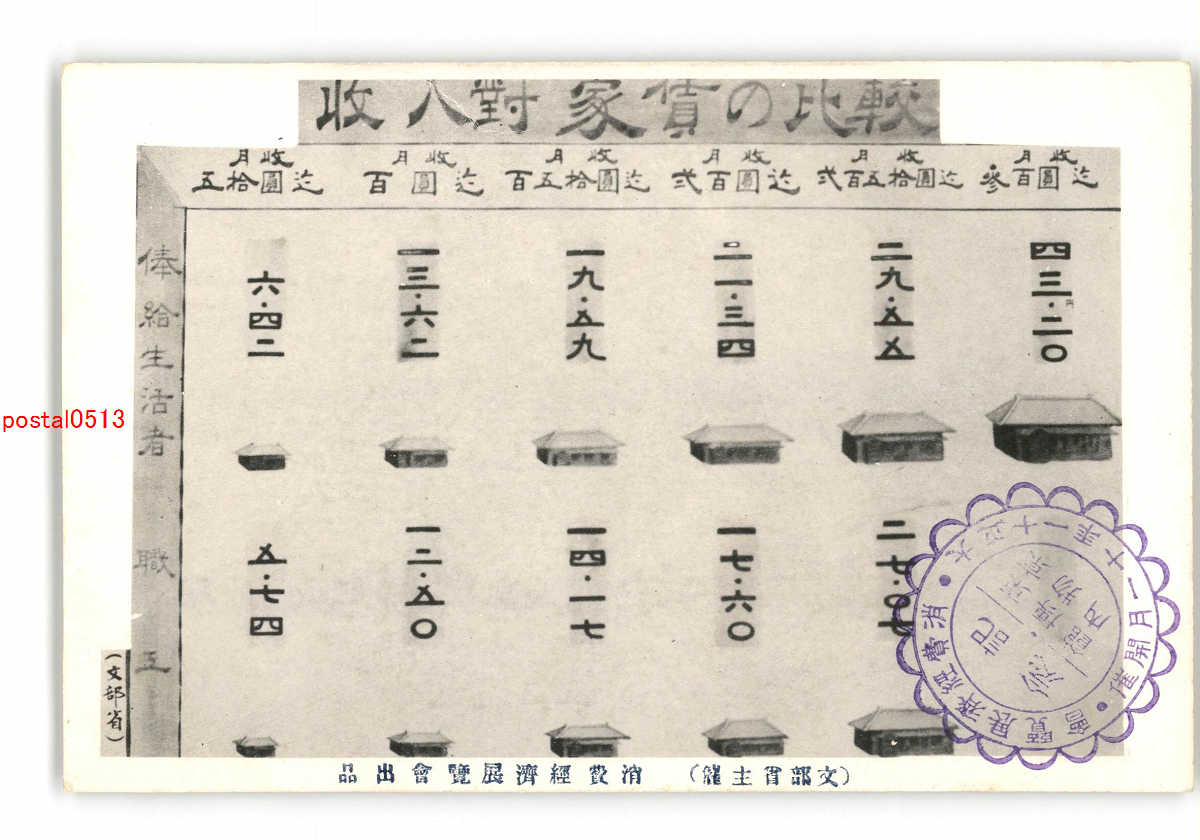 收入對家賃の比較
月收
五拾圓迄
月收
百圓迄
月收
百五拾圓迄
月收
弍百圓迄
月收
弍百五拾圓迄
月收
參百圓迄
俸給生活者
六・四二
一三・六二
一九・五九
二一・三四
二九・五五
四三・二〇
円
職工
五・七四
一二・五〇
一四・一七
一七・六〇
二七・〇七
(文部省)
(文部省主催) 消費經濟展覽會出品
消費經濟展覽會
大正十一年十一月開催
記念
postal0513